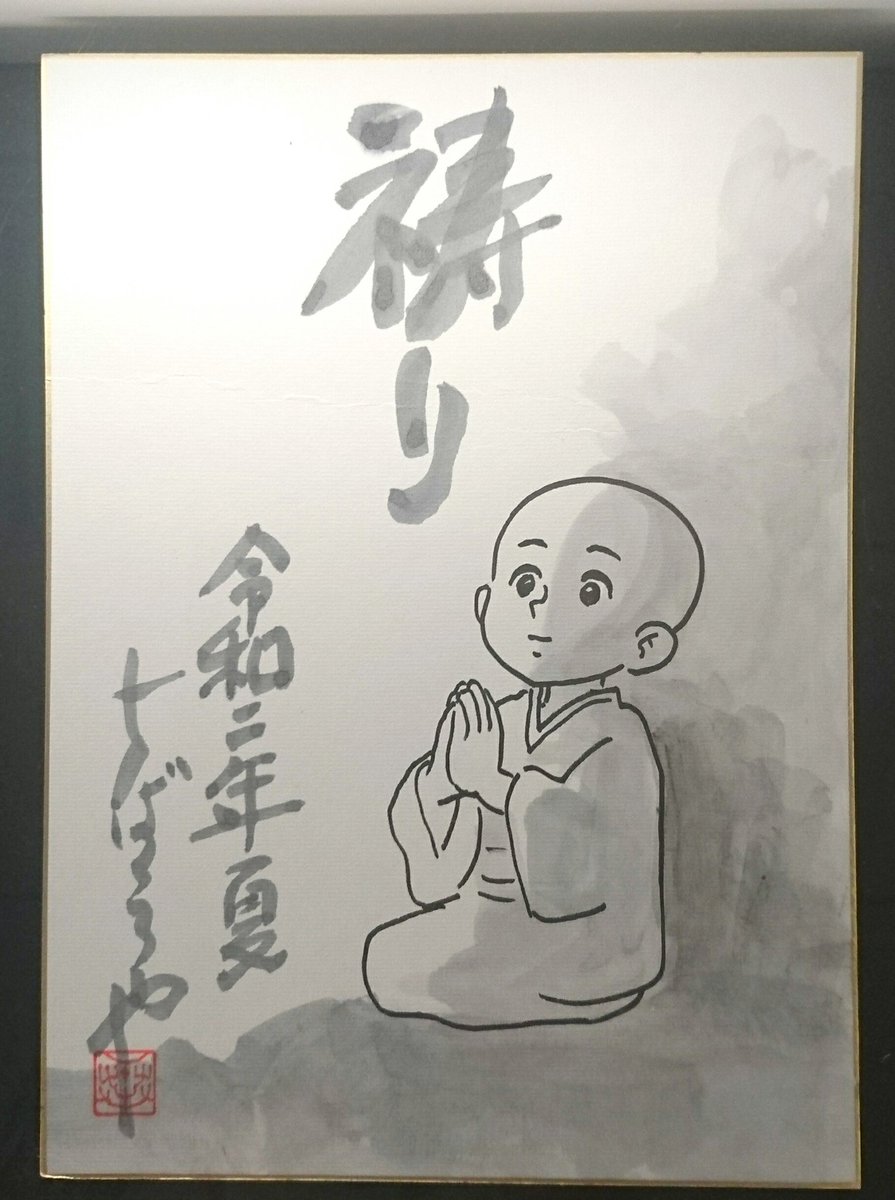 祷り
令和二年夏
ちばてつや